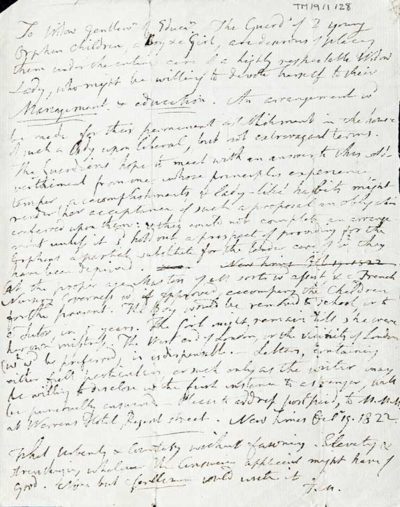 TM/9/1/128
To Widow Gentlewn of Educan. The Guardns of 2 young
Orphan children, a boy & Girl, are desirous of placing
them under the entire care of a highly respectable Widow
Lady, who might be willing to devote herself to their
Management & education. An arrangement to
be made for their permanent establishment in the house
of such a Lady upon liberal, but not extravagant terms.
The Guardians hope to meet with an answer to this ad-
vertisement from one, whose principles, experience,
temper, accomplishments & lady-like habits might
render her acceptance of such a proposal an obligation
conferred upon them: they could not complete an arrange
ment unless it held out a prospect of providing for the
Orphans a partial substitute for the tender care they
have been deprived
at the proper age Masters of all sorts to assist & a French
Nursery Governess if approved accompany the Children
for the present. The Boy would be removed to school or to
a Tutor in years. The Girl might remain till she were
The West end of London, or the vicinity of London
to be preferred, is indispensable. Letters, containing
either full particulars, or such only as the writer may
be willing to disclose in the first instance to a stranger, will
be punctually answered. Please to address, post paid, to M.M.M.
at Warrens Hotel Regent Street. New Times Octr 19. 1822.
What urbanity & courtesy without fawning. Elevating &
the answers & applicants might have
good. None but a gentleman could write it.